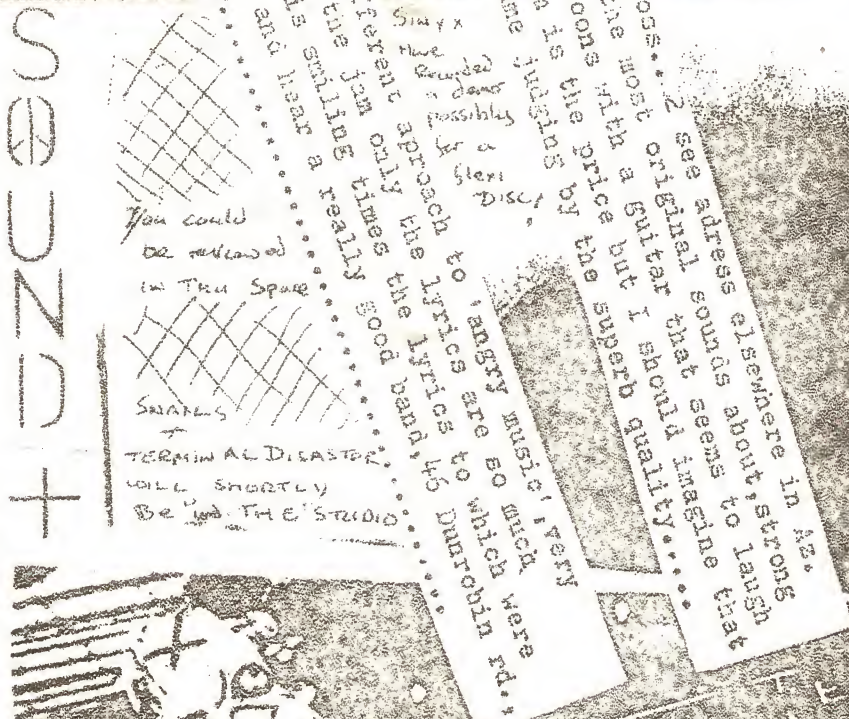 SOUND+
You could
be reviewed
in This Space
SNAILS
+
TERMINAL DISASTER
WILL SHORTLY
BE IN THE STUDIO
Sinyx
Have
Recorded
a demo
possibly
for a
flexi
DISC,
oss... 2 see adress elsewhere in AZ.
the most original sounds about,strong
oons with a guitar that seems to laugh
is the price but I should imagine that
me judging by the superb quality.....
fferent aproach to 'angry music',very
the jam only the lyrics are so much
is smiling times the lyrics to which were
and hear a really good band,46 Dunrobin rd.,